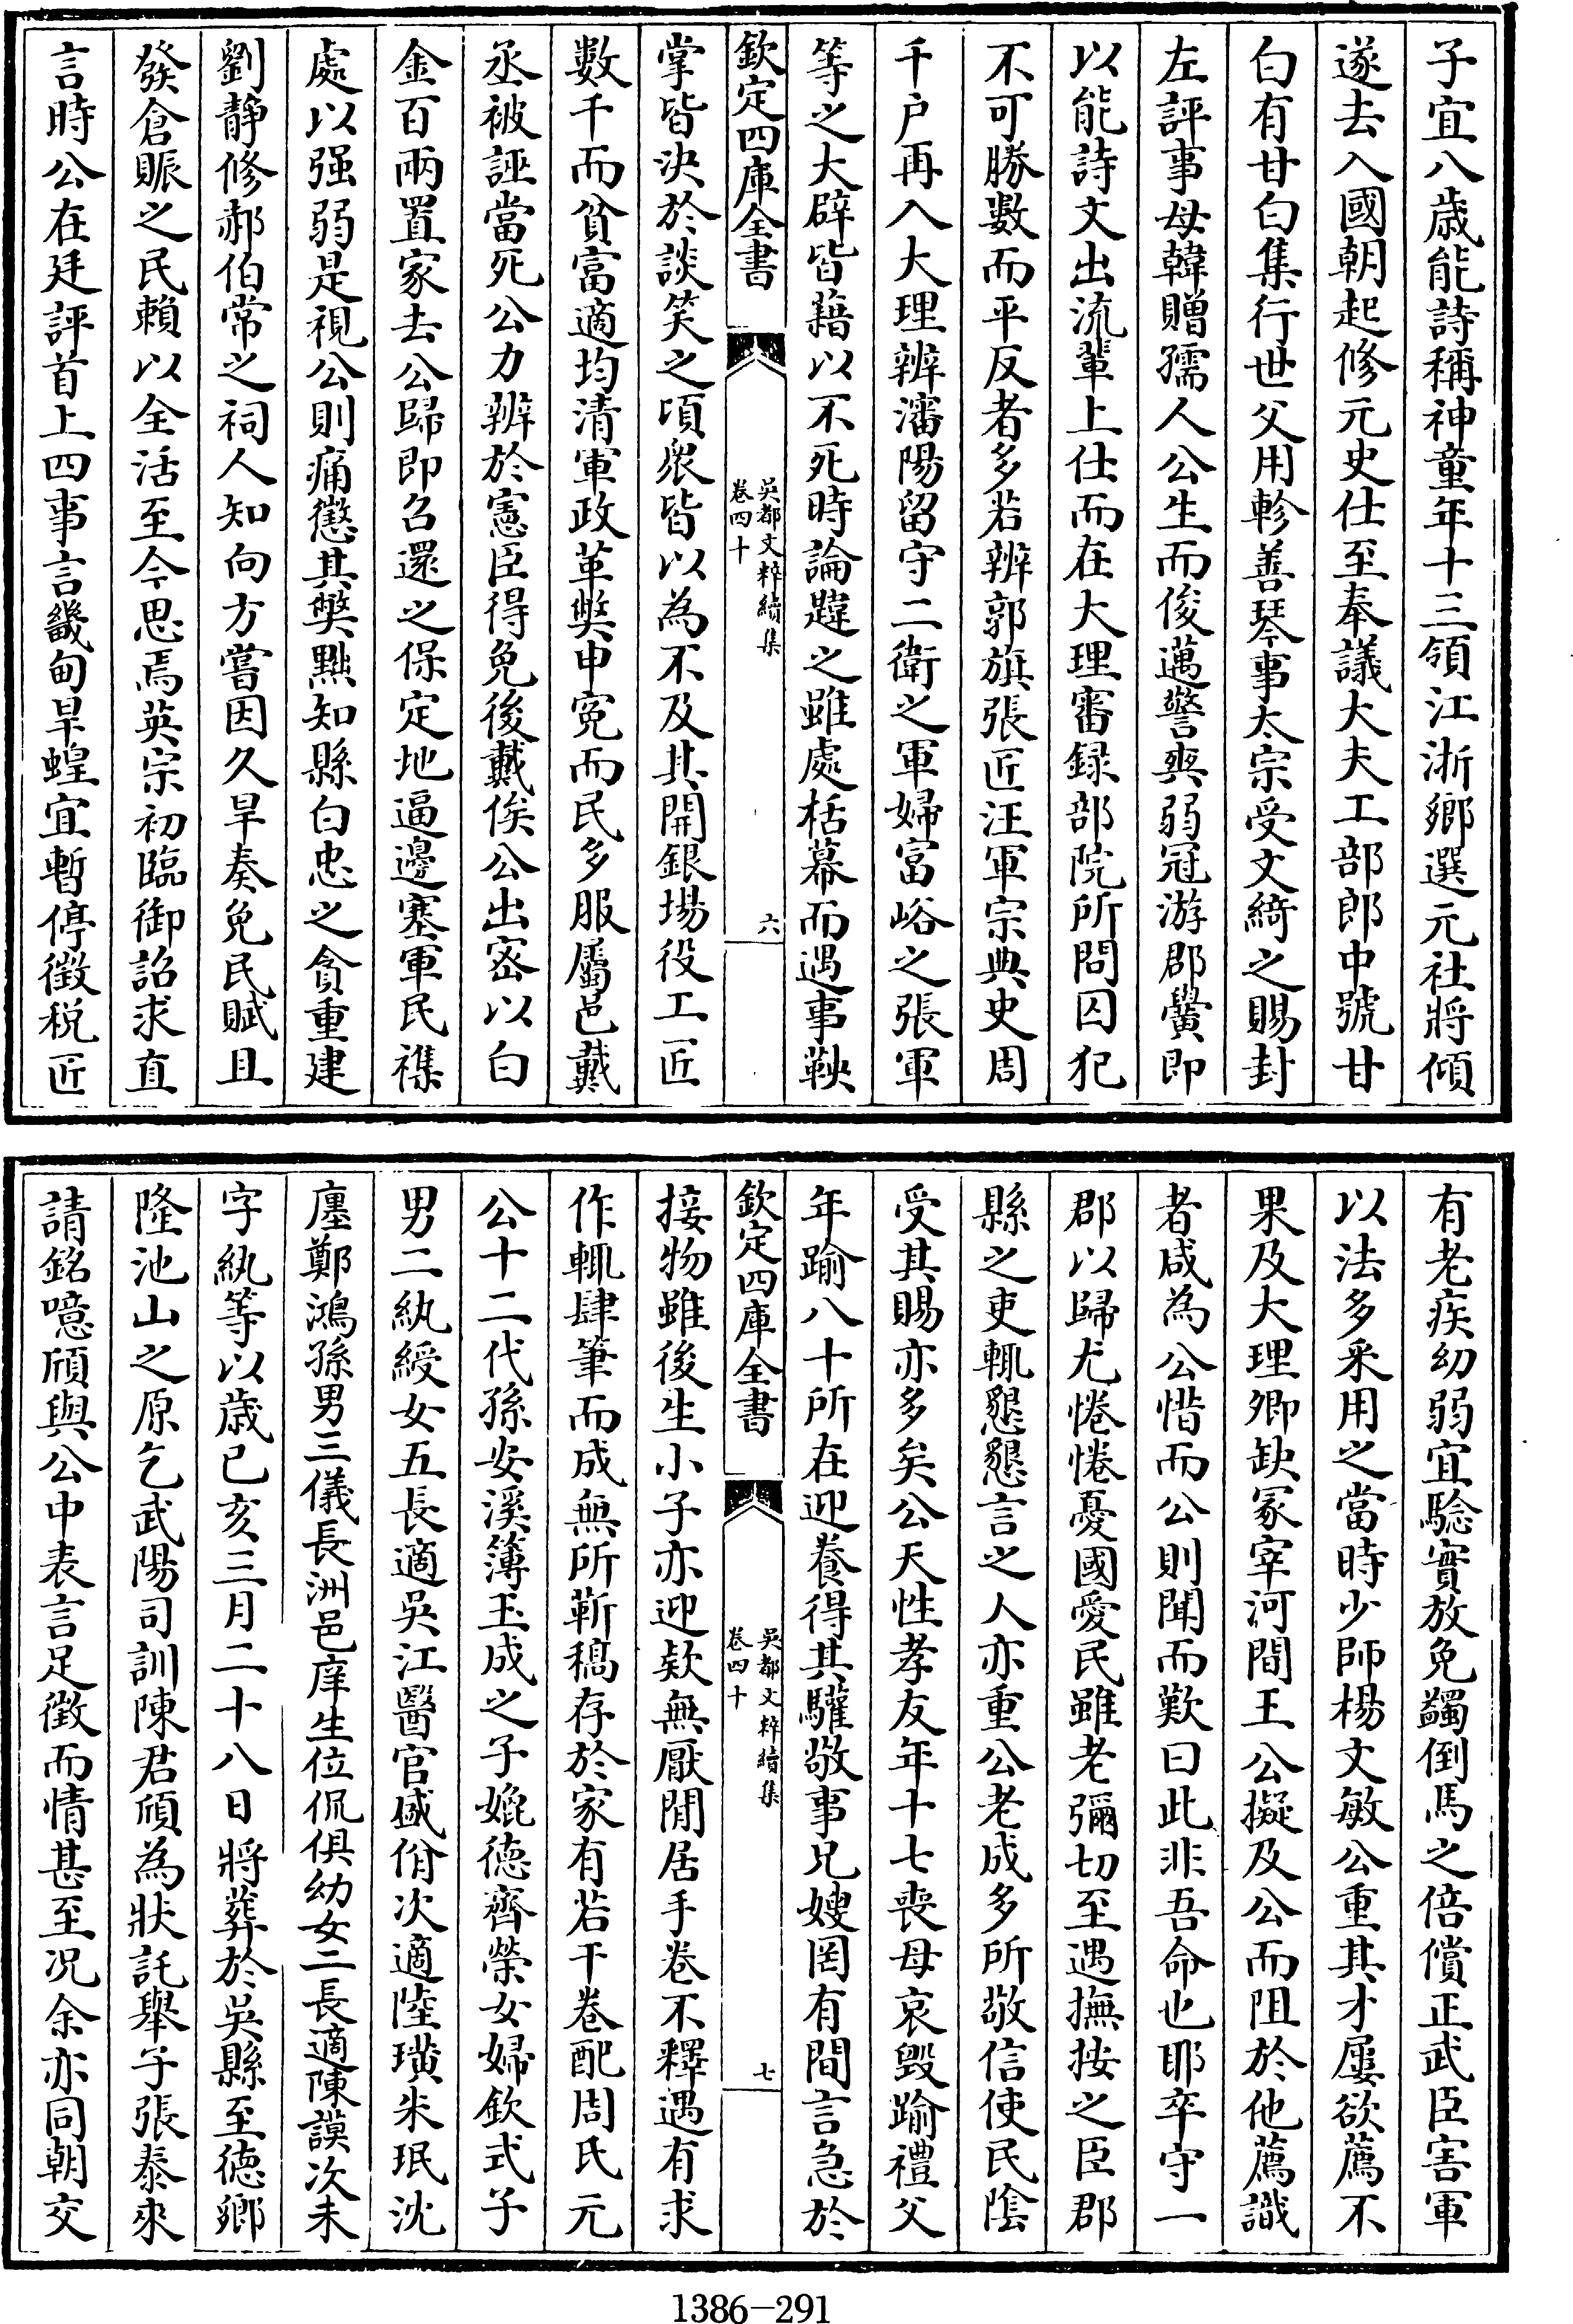 子宜八歲能詩稱神童年十三領江浙鄉選元社將傾
遂去入國朝起修元史仕至奉議大夫工部郎中號甘
白有甘白集行世父用軫善琴事太宗受文綺之賜封
左評事母韓贈孺人公生而俊邁警爽弱冠游郡黌即
以能詩文出流輩上仕而在大理審録部院所問囚犯
不可勝數而平反者多若辨郭旗張匠汪軍宗典史周
千户再入大理辨瀋陽留守二衛之軍婦富峪之張軍
等之大辟皆藉以不死時論韙之雖處栝幕而遇事鞅
欽定四庫全書
吳都文粹續集
卷四十
六
掌皆決於談笑之頃衆皆以為不及其開銀場役工匠
數千而貧富適均清軍政革弊申寃而民多服屬邑戴
丞被誣當死公力辨於憲臣得免後戴俟公出密以白
金百兩置家去公歸即召還之保定地逼邊塞軍民襍
處以强弱是視公則痛懲其弊黜知縣白忠之貪重建
劉靜修郝伯常之祠人知向方嘗因久旱奏免民賦且
發倉賑之民賴以全活至今思焉英宗初臨御詔求直
言時公在廷評首上四事言畿甸旱蝗宜暫停徵税匠
有老疾幼弱宜驗實放免蠲倒馬之倍償正武臣害軍
以法多采用之當時少師楊文敏公重其才屢欲薦不
果及大理卿缺冢宰河間王公擬及公而阻於他薦識
者咸為公惜而公則聞而歎曰此非吾命也耶卒守一
郡以歸尤惓惓憂國愛民雖老彌切至遇撫按之臣郡
縣之吏輒懇懇言之人亦重公老成多所敬信使民隂
受其賜亦多矣公天性孝友年十七喪母哀毁踰禮父
年踰八十所在迎養得其驩敬事兄嫂罔有間言急於
欽定四庫全書
吳都文粹續集
卷四十
七
接物雖後生小子亦迎欵無厭閒居手卷不釋遇有求
作輒肆筆而成無所靳稿存於家有若干卷配周氏元
公十二代孫安溪簿玉成之子婉德齊榮女婦欽式子
男二紈綬女五長適吳江醫官盛佾次適陸璜朱珉沈
廛鄭鴻孫男三儀長洲邑庠生位侃俱幼女二長適陳謨次未
字紈等以歲己亥三月二十八日將葬於吳縣至德鄉
隆池山之原乞武陽司訓陳君頎為狀託舉子張泰來
請銘噫頎與公中表言足徵而情甚至况余亦同朝交
1386-291